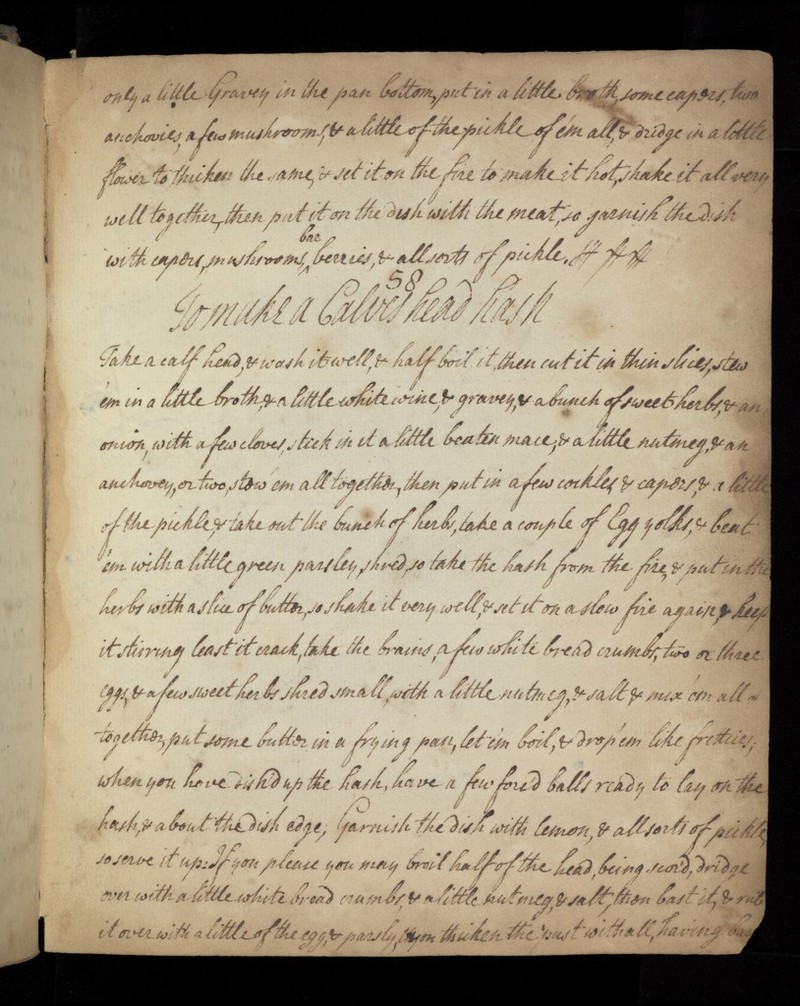 only a little Gravey in the pan bottom, put in a little broth, some capers, two
anchovies, a few mushrooms, & a little of the pickle of 'em all, & dridge in a little
flower to thicken the same, & set it on the fire to make it hot, shake it all very
well together, then put it on the dish with the meat, so garnish the dish
bar
with capers, mushrooms, ^ berries, & all sorts of pickle.
58
To make a Calves head hash
Take a calf head, & wash it well, & half boil it, then cut it in thin slices, stew
'em in a little broth, & a little white wine, & gravey, & a bunch of sweet herbs, & an
onion, with a few cloves, stick in it a little beaten mace, & a little nutmeg, & an
anchovey, or two, stew 'em all together, then put in a few cockles, & capers, & a little
of the pickle, & take out the bunch of herbs, take a couple of Egg yolks, & beat
'em with a little green parsley, shred, so take the hash from the fire, & put in the
herbs with a slice of butter, so shake it very well, & set it on a slow fire again, & keep
it stirring least it crack, take the brains, a few white bread crumbs, two or three
eggs, & a few sweet herbs shred small, with a little nutmeg, & salt & mix 'em all
together, put some butter in a frying pan, let 'em boil, & drop 'em like fritties,
when you have dish'd up the hash, have a few forc'd balls ready to lay on the
hash, & about the dish edge, Garnish the dish with lemon, & all sorts of pickle,
so serve it up: If you please you may broil half of the head, being scord, dridge
over with a little white bread crumbs, & a little nutmeg, & salt, then bast it, & rub
it over with a little of the egg, & parsly, you thicken the rest withall, having